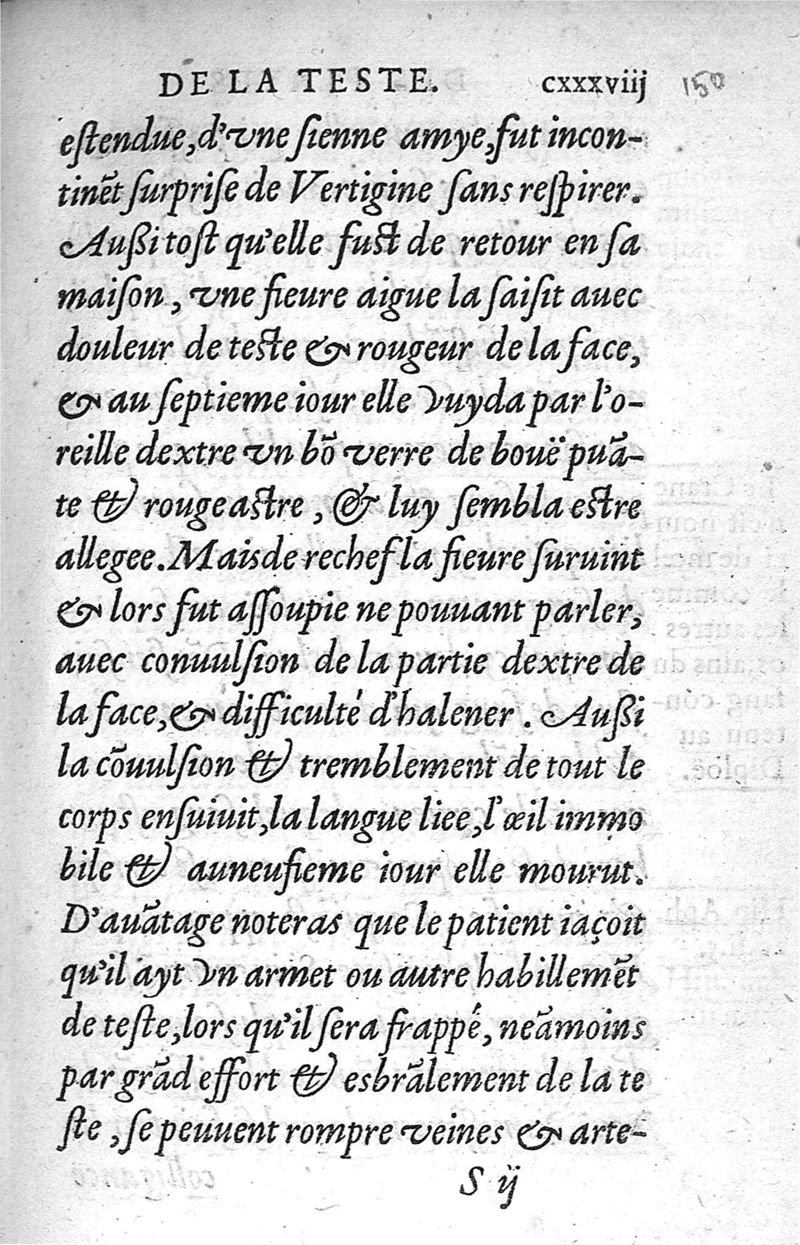 DE LA TESTE. cxxxviij 150
eſtendue,d'vne ſienne amye,fut incon-
tinēt ſurpriſe de Vertigine ſans reſpirer.
Außi toſt qu'elle fuſt de retour en ſa
maiſon, vne fieure aigue la ſaiſit auec
douleur de teſte & rougeur de la face,
& au ſeptieme iour elle vuyda par l'o-
reille dextre vn bō verre de bouë puā-
te & rougeaſtre, & luy ſembla eſtre
allegee. Mais de rechef la fieure ſuruint
& lors fut aſſoupie ne pouuant parler,
auec conuulſion de la partie dextre de
la face,& difficulté d'halener. Außi
la cōuulſion & tremblement de tout le
corps enſuiuit,la langue liee,l'œil immo
bile & au neufieme iour elle mourut.
D'auātage noteras que le patient iaçoit
qu'il ayt vn armet ou autre habillemēt
de teſte,lors qu'il ſera frappé, neāmoins
par grād effort & esbrālement de la te
ſte, ſe peuuent rompre veines & arte-
S ij